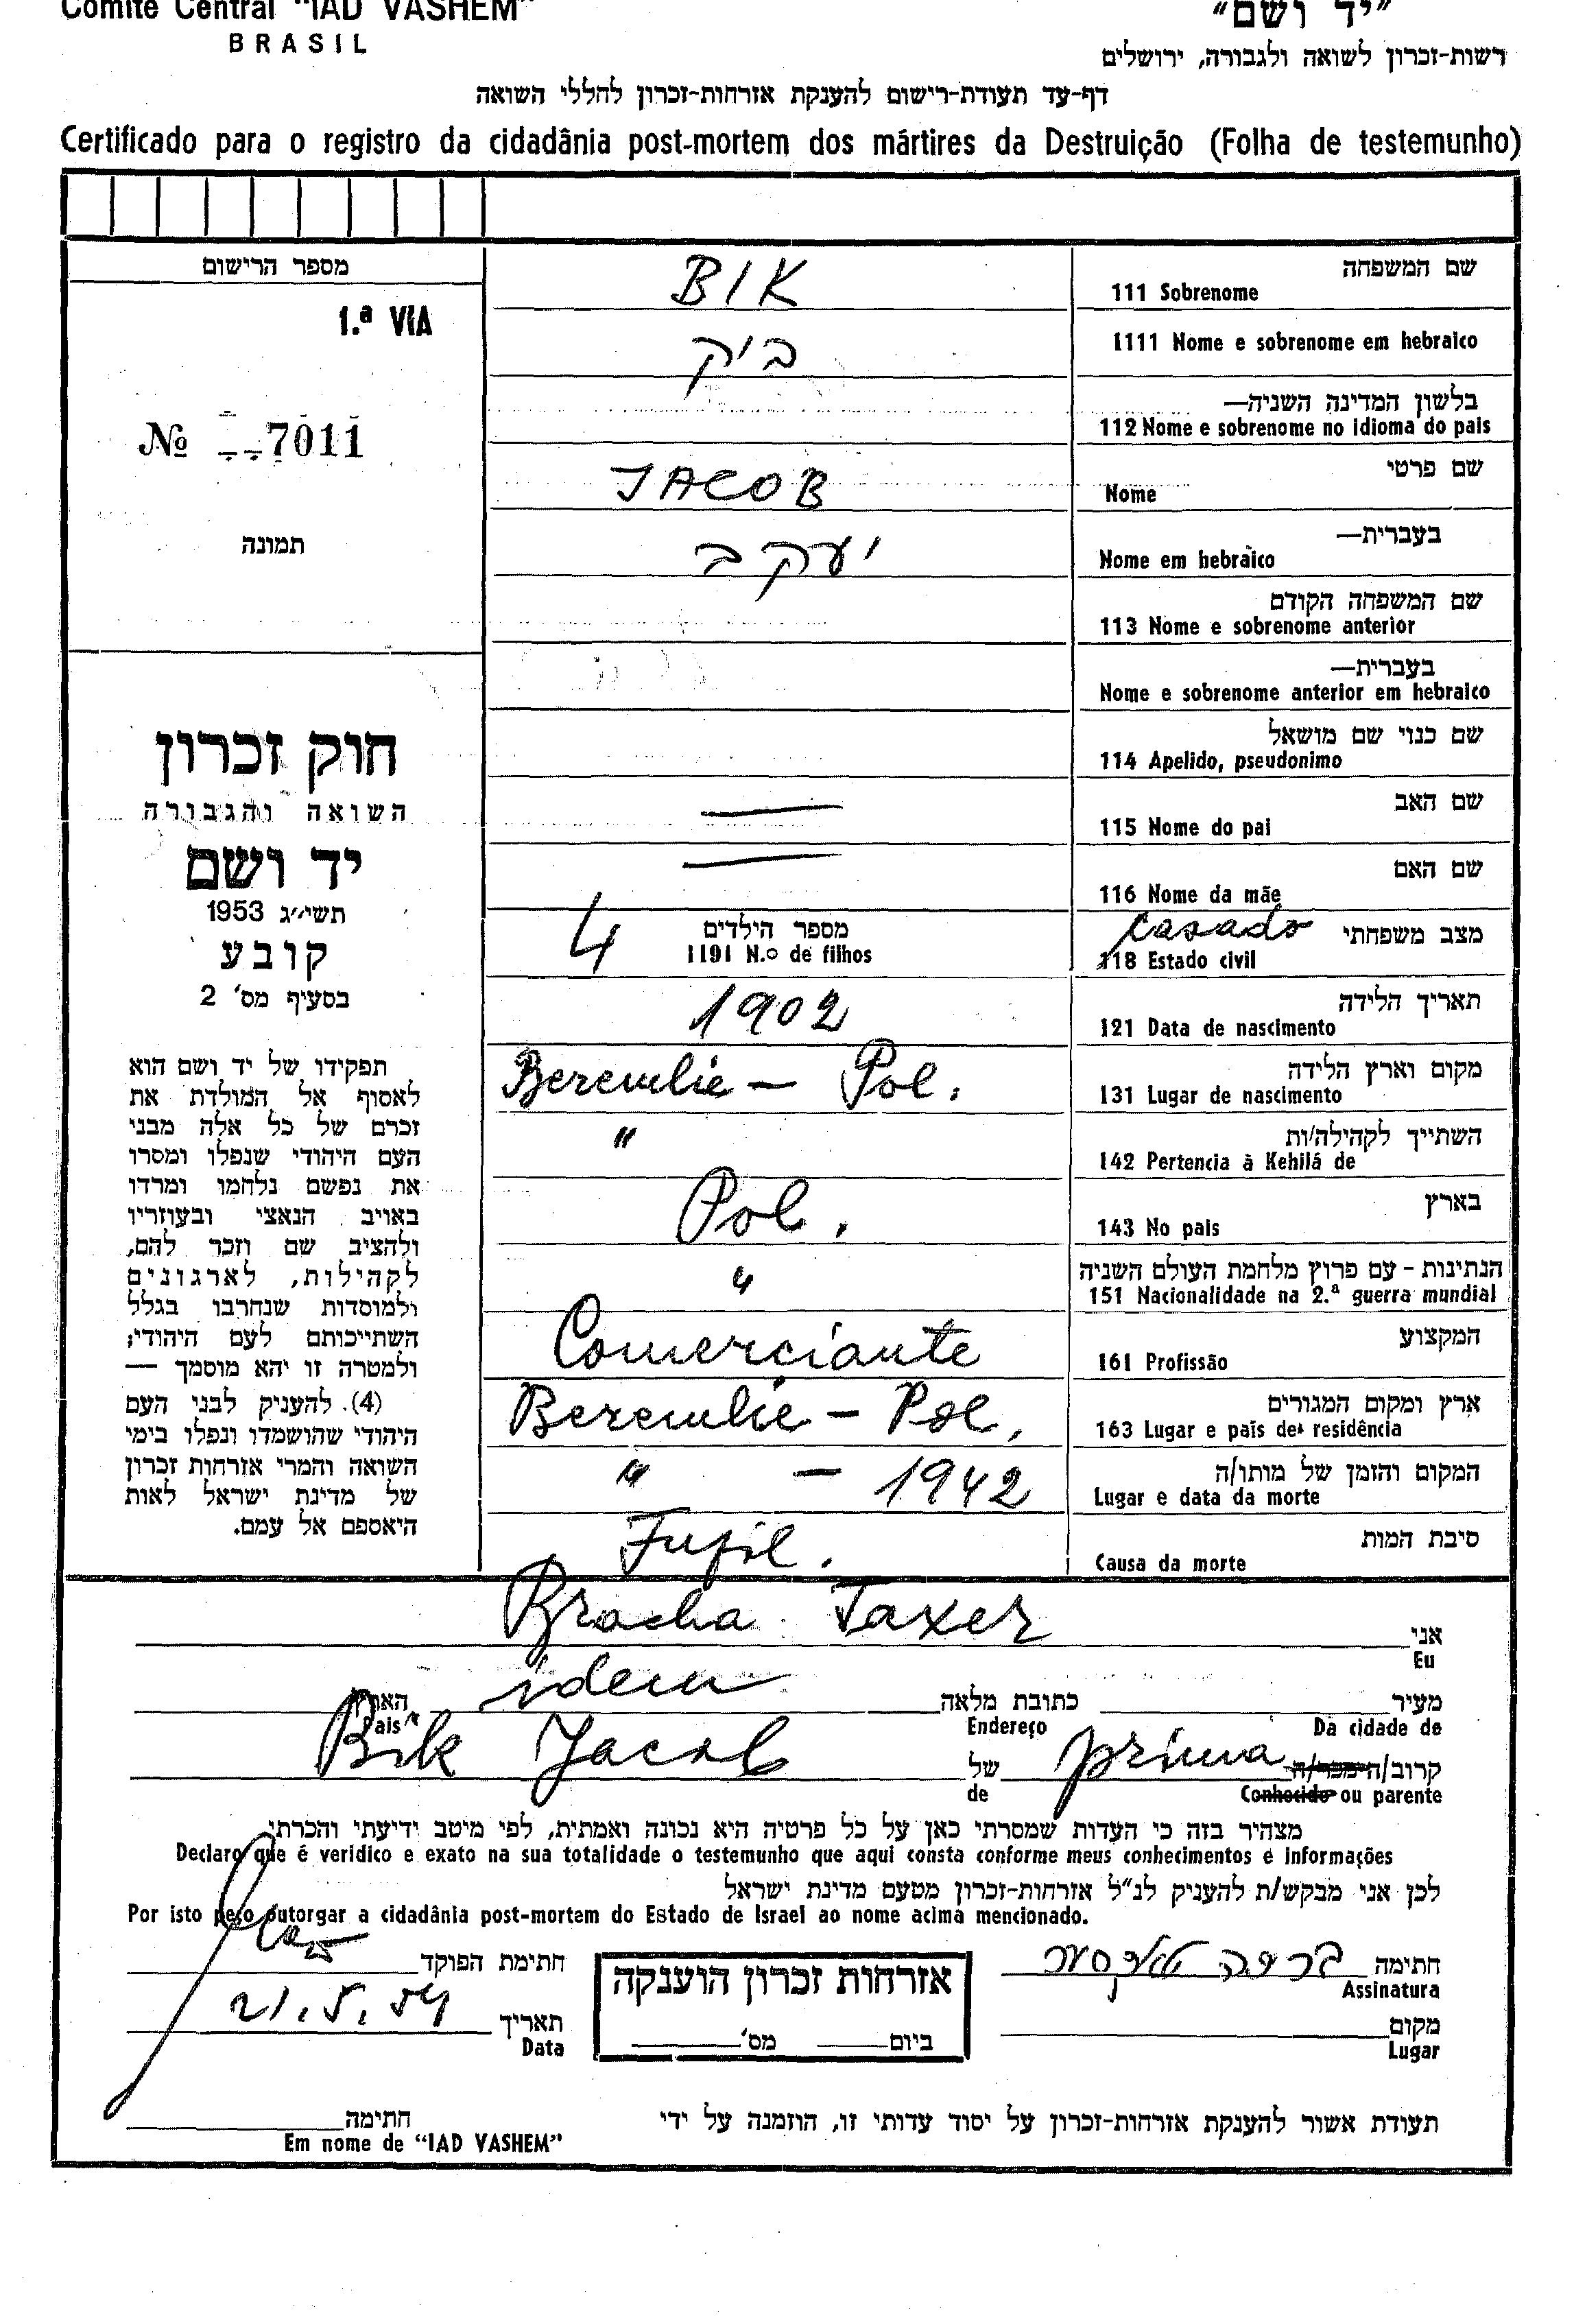 Comité Central "IAD VASHEM"
BRASIL
"יד ושם"
רשות-זכרון לשואה ולגבורה, ירושלים
דף-עד תעודת-רישום להענקת אזרחות-זכרון לחללי השואה
Certificado para o registro da cidadânia post-mortem dos mártires da Destruição (Folha de testemunho)
מספר הרישום
1.ª VIA
№ 7011
תמונה
חוק זכרון
השואה והגבורה
יד ושם
תשי״ג 1953
קובע
בסעיף מס' 2
תפקידו של יד ושם הוא
לאסוף אל המולדת את
זכרם של כל אלה מבני
העם היהודי שנפלו ומסרו
את נפשם נלחמו ומרדו
באויב הנאצי ובעוזריו
ולהציב שם וזכר להם,
לקהילות, לארגונים
ולמוסדות שנחרבו בגלל
השתייכותם לעם היהודי;
ולמטרה זו יהא מוסמך —
(4). להעניק לבני העם
היהודי שהושמדו ונפלו בימי
השואה והמרי אזרחות זכרון
של מדינת ישראל לאות
היאספם אל עמם.
שם המשפחה
111 Sobrenome BIK
1111 Nome e sobrenome em hebraico ביק
בלשון המדינה השניה—
112 Nome e sobrenome no idioma do pais
שם פרטי
Nome JACOB
בעברית—
Nome em hebraico יעקב
שם המשפחה הקודם
113 Nome e sobrenome anterior
בעברית—
Nome e sobrenome anterior em hebraico
שם כנוי שם מושאל
114 Apelido, pseudonimo
שם האב
115 Nome do pai —
שם האם
116 Nome da mãe —
מצב משפחתי casado
118 Estado civil
מספר הילדים
1191 N.º de filhos 4
תאריך הלידה
121 Data de nascimento 1902
מקום וארץ הלידה
131 Lugar de nascimento Beremlie — Pol.
השתייך לקהילה/ות
142 Pertencia à Kehilá de "
בארץ
143 No pais Pol.
הנתינות - עם פרוץ מלחמת העולם השניה
151 Nacionalidade na 2.ª guerra mundial "
המקצוע
161 Profissão Comerciante
ארץ ומקום המגורים
163 Lugar e país de residência Beremlie — Pol,
המקום והזמן של מותו/ה
Lugar e data da morte " — 1942
סיבת המות
Causa da morte Fusil.
אני
Eu Bracha Taxer
מעיר כתובת מלאה idem
Da cidade de Endereço Pais
קרוב/ה מכר/ה prima של Bik Jacob
Conhecido ou parente de
מצהיר בזה כי העדות שמסרתי כאן על כל פרטיה היא נכונה ואמתית, לפי מיטב ידיעתי והכרתי
Declaro que é veridico e exato na sua totalidade o testemunho que aqui consta conforme meus conhecimentos e informações
לכן אני מבקש/ת להעניק לנ"ל אזרחות-זכרון מטעם מדינת ישראל
Por isto peço outorgar a cidadânia post-mortem do Estado de Israel ao nome acima mencionado.
חתימה ברכה טאקסער
Assinatura
אזרחות זכרון הוענקה
ביום מס'
חתימת הפוקד
תאריך 21.5.54
Data
מקום
Lugar
תעודת אשור להענקת אזרחות-זכרון על יסוד עדותי זו, הוזמנה על ידי
חתימה
Em nome de "IAD VASHEM"